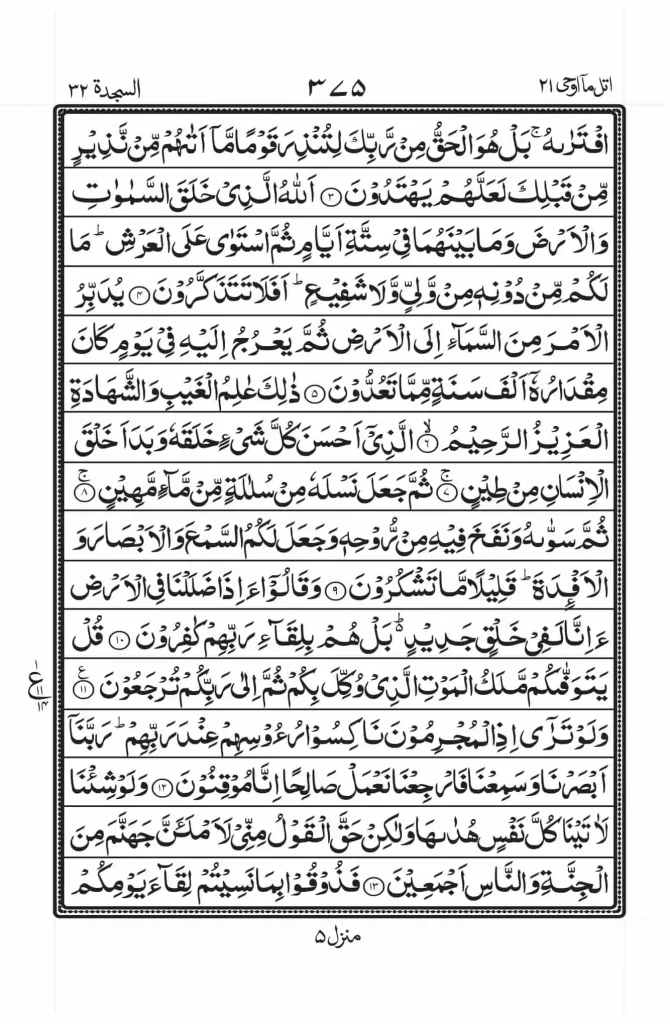 اتل مآ اوحی ۲۱ ۳۷۵ السجدة ۳۲
افْتَرٰىهُ ۚ بَلْ هُوَ الْحَقُّ مِنْ رَّبِّكَ لِتُنْذِرَ قَوْمًا مَّاۤ اَتٰىهُمْ مِّنْ نَّذِيْرٍ
مِّنْ قَبْلِكَ لَعَلَّهُمْ يَهْتَدُوْنَ ۝۳ اَللّٰهُ الَّذِىْ خَلَقَ السَّمٰوٰتِ
وَالْاَرْضَ وَمَا بَيْنَهُمَا فِىْ سِتَّةِ اَيَّامٍ ثُمَّ اسْتَوٰى عَلَى الْعَرْشِ ؕ مَا
لَكُمْ مِّنْ دُوْنِهٖ مِنْ وَّلِىٍّ وَّلَا شَفِيْعٍ ؕ اَفَلَا تَتَذَكَّرُوْنَ ۝۴ يُدَبِّرُ
الْاَمْرَ مِنَ السَّمَآءِ اِلَى الْاَرْضِ ثُمَّ يَعْرُجُ اِلَيْهِ فِىْ يَوْمٍ كَانَ
مِقْدَارُهٗۤ اَلْفَ سَنَةٍ مِّمَّا تَعُدُّوْنَ ۝۵ ذٰلِكَ عٰلِمُ الْغَيْبِ وَالشَّهَادَةِ
الْعَزِيْزُ الرَّحِيْمُ ۝۶ۙ الَّذِىْۤ اَحْسَنَ كُلَّ شَىْءٍ خَلَقَهٗ وَبَدَاَ خَلْقَ
الْاِنْسَانِ مِنْ طِيْنٍ ۝۷ۚ ثُمَّ جَعَلَ نَسْلَهٗ مِنْ سُلٰلَةٍ مِّنْ مَّآءٍ مَّهِيْنٍ ۝۸ۚ
ثُمَّ سَوّٰىهُ وَنَفَخَ فِيْهِ مِنْ رُّوْحِهٖ وَجَعَلَ لَكُمُ السَّمْعَ وَالْاَبْصَارَ وَ
الْاَفْـِٕدَةَ ؕ قَلِيْلًا مَّا تَشْكُرُوْنَ ۝۹ وَقَالُوْۤا ءَاِذَا ضَلَلْنَا فِى الْاَرْضِ
ءَاِنَّا لَفِىْ خَلْقٍ جَدِيْدٍ ؕ۬ بَلْ هُمْ بِلِقَآءِ رَبِّهِمْ كٰفِرُوْنَ ۝۱۰ قُلْ
يَتَوَفّٰىكُمْ مَّلَكُ الْمَوْتِ الَّذِىْ وُكِّلَ بِكُمْ ثُمَّ اِلٰى رَبِّكُمْ تُرْجَعُوْنَ ۝۱۱ ع
ع ۱ ۱۱ ۱۴
وَلَوْ تَرٰٓى اِذِ الْمُجْرِمُوْنَ نَاكِسُوْا رُءُوْسِهِمْ عِنْدَ رَبِّهِمْ ؕ رَبَّنَاۤ
اَبْصَرْنَا وَسَمِعْنَا فَارْجِعْنَا نَعْمَلْ صَالِحًا اِنَّا مُوْقِنُوْنَ ۝۱۲ وَلَوْ شِئْنَا
لَاٰتَيْنَا كُلَّ نَفْسٍ هُدٰىهَا وَلٰكِنْ حَقَّ الْقَوْلُ مِنِّىْ لَاَمْلَـَٔنَّ جَهَنَّمَ مِنَ
الْجِنَّةِ وَالنَّاسِ اَجْمَعِيْنَ ۝۱۳ فَذُوْقُوْا بِمَا نَسِيْتُمْ لِقَآءَ يَوْمِكُمْ
منزل ۵